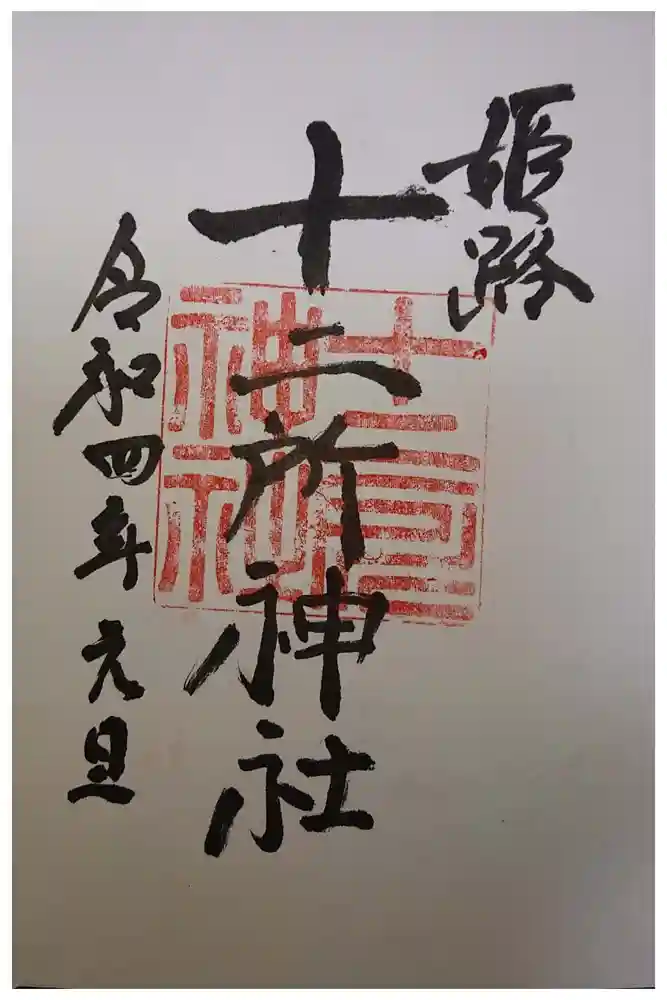 姫路
十二所神社
十二所神社
令和四年元旦